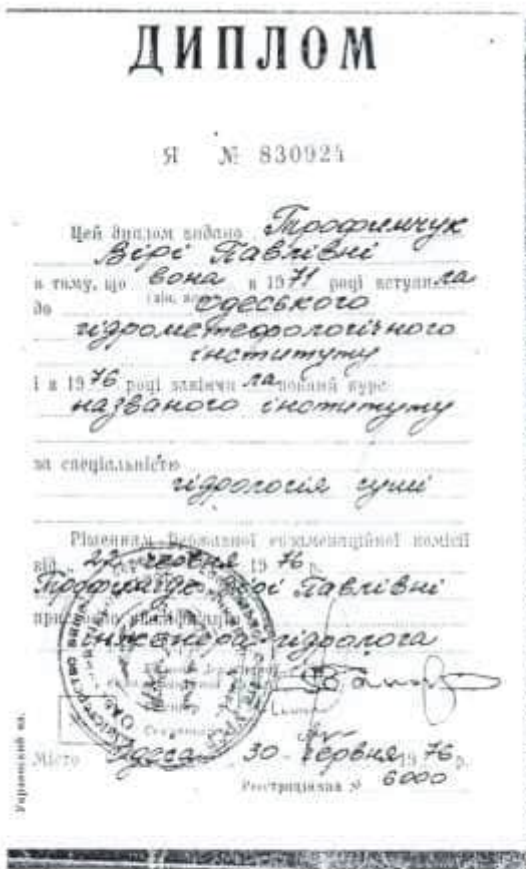 ДИПЛОМ
Я № 830924
Цей диплом видано Трофимчук
Вірі Павлівні
в тому, що вона в 1971 році вступила
до Одеського
гідрометеорологічного
інституту
і в 1976 році закінчила повний курс
названого інституту
за спеціальністю
гідрологія суші
Рішенням Державної екзаменаційної комісії
від 22 червня 1976 р.
Трофимчук Вірі Павлівні
присвоєно кваліфікацію
інженера-гідролога
Місто Одеса 30 червня 1976 р.
Реєстраційний № 6000